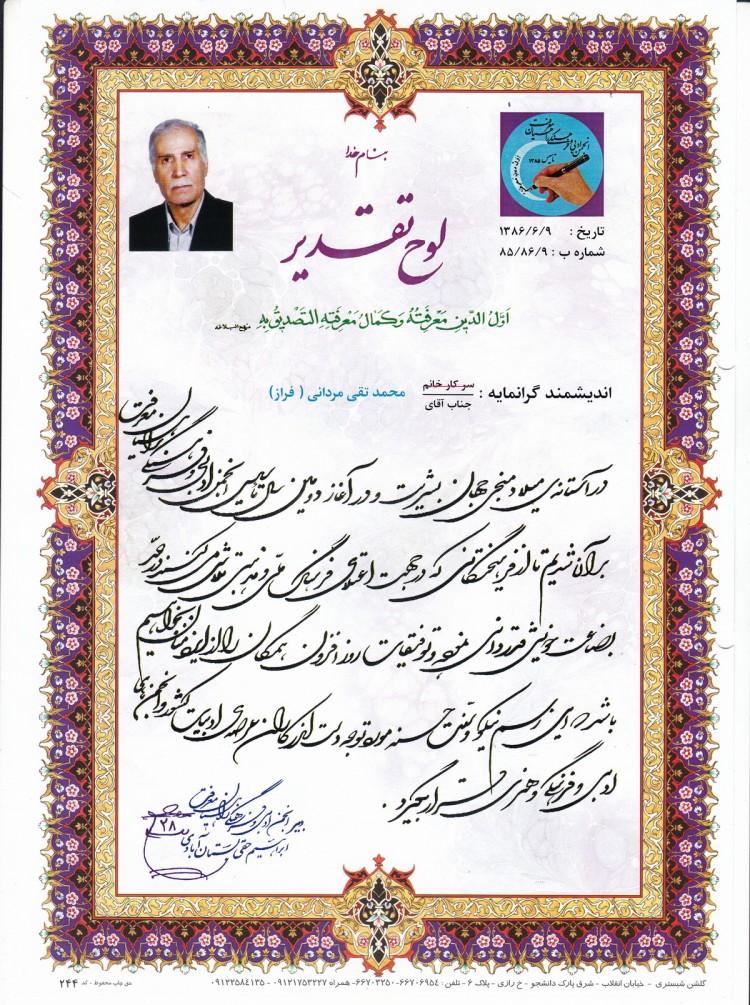 بنام خدا
انجمن ادبی و فرهنگی
تاسیس ۱۳۸۵
تاریخ : ۱۳۸۶/۶/۹
شماره ب : ۸۵/۸۶/۹
لوح تقدیر
اَوَّلُ الدّینِ مَعْرِفَتُهُ وَ کَمالُ مَعْرِفَتِهِ التَّصْدیقُ بِهِ نهج البلاغه
اندیشمند گرانمایه : سرکار خانم
جناب آقای
محمد تقی مردانی ( فراز )
در آستانه‌ی میلاد منجی جهان بشریت و در آغاز دومین سال تاسیس انجمن ادبی و فرهنگی
بر آن شدیم تا از فرهیختگانی که در جهت اعتلای فرهنگ ملی و مذهبی تلاش می کنند در حد
بضاعت خویش قدردانی نموده و توفیقات روز افزون همگان را از ایزد منان بخواهیم
باشد که این رسم نیکو و سنت حسنه مورد توجه دست اندرکاران عرصه‌ی ادبیات کشور و انجمن های
ادبی و فرهنگی و هنری قرار بگیرد .
دبیر انجمن ادبی و فرهنگی
ابراهیم حقی
۲۸
گلشن شبستری - خیابان انقلاب - شرق پارک دانشجو - خ رازی - پلاک ۶ - تلفن : ۶۶۷۰۶۹۵۴-۶۶۷۰۳۲۵۰ همراه ۰۹۱۲۱۷۵۳۲۲۷ - ۰۹۱۲۲۵۸۴۱۳۵
حق چاپ محفوظ - کد ۲۴۴